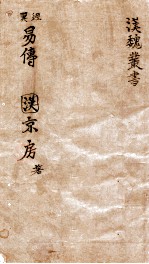 漢魏叢書
經翼
易傳
漢京房著